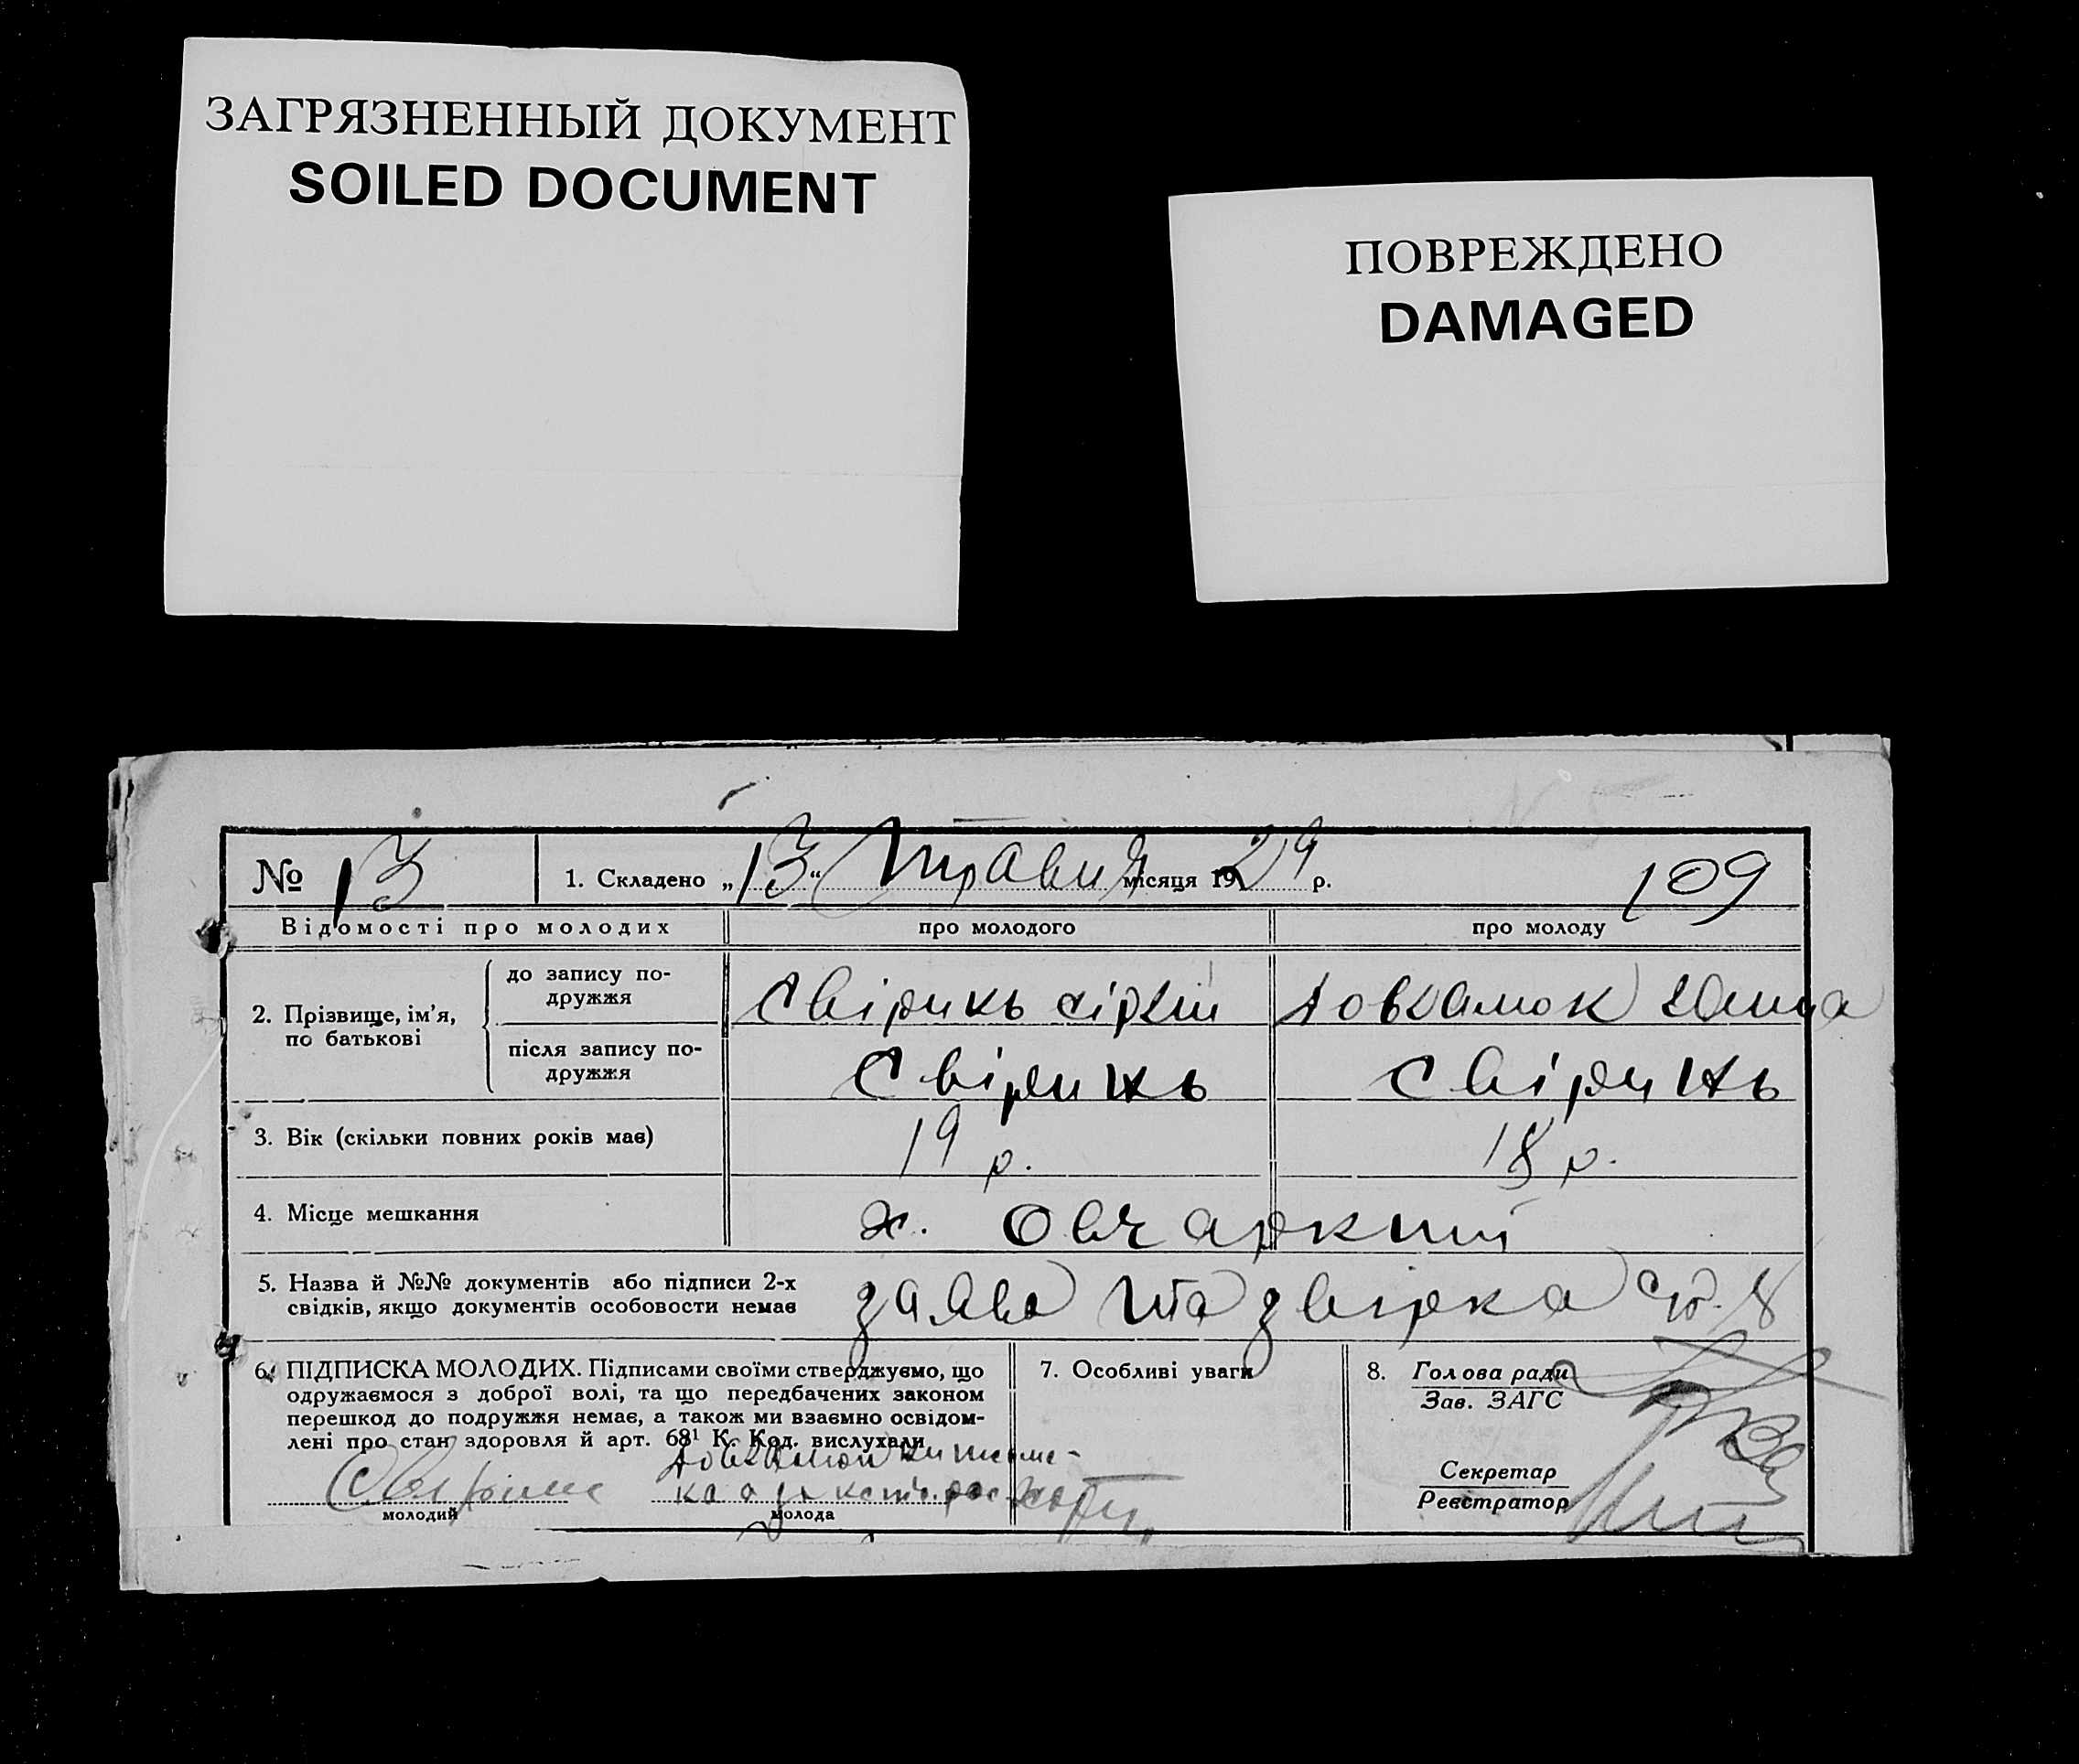 ЗАГРЯЗНЕННЫЙ ДОКУМЕНТ
SOILED DOCUMENT
ПОВРЕЖДЕНО
DAMAGED
№ 13
1. Складено „13“ Травня місяця 1929 р.
109
Відомості про молодих
про молодого
про молоду
2. Прізвище, ім'я, по батькові
до запису по-
дружжя
Свіринь
після запису по-
дружжя
Свіринь
Свіринь
3. Вік (скільки повних років має)
19 р.
18 р.
4. Місце мешкання
х. Овчаркий
5. Назва й №№ документів або підписи 2-х
свідків, якщо документів особовости немає
заява та звірка 8
6. ПІДПИСКА МОЛОДИХ. Підписами своїми стверджуємо, що
одружаємося з доброї волі, та що передбачених законом
перешкод до подружжя немає, а також ми взаємно освідом-
лені про стан здоровля й арт. 68¹ К. Код. вислухали
молодий
молода
7. Особливі уваги
8. Голова ради
Зав. ЗАГС
Секретар
Реєстратор